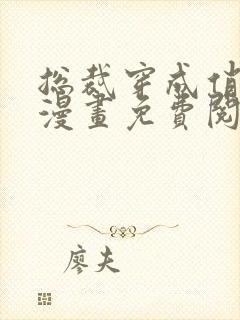 总裁穿成俏
漫畫免費閱
廖夫